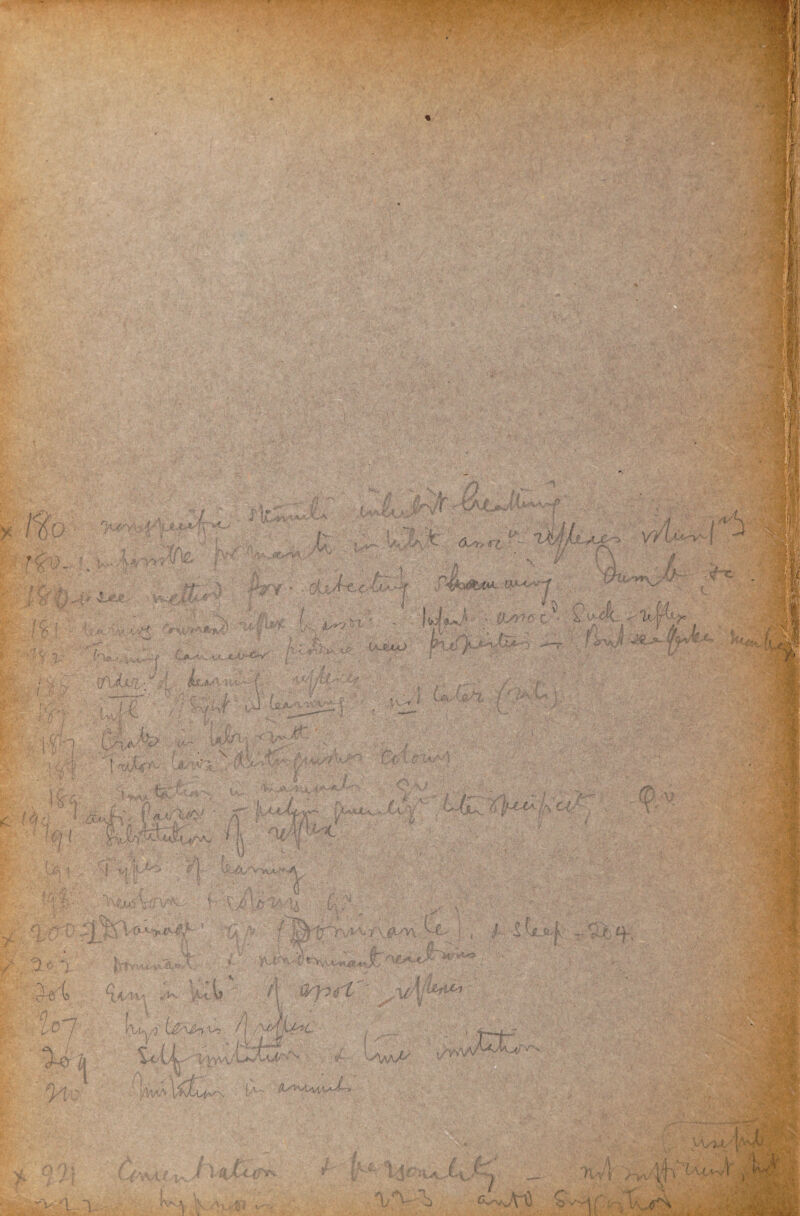 x 180 nonspecific stimuli inhibit breathing
180-1. impossible for man to inhibit assocn reflexes
180-1 see method for detecting shamming Dumb &c.
181 learning command reflex by assocn. Infant assocd suck-reflex
182 Training can never produce new properties — But see
185 order of learning reflexes
187 infl of sight in learning, not later (rats)
187 Crabs in labyrinth
188 Triton larvae distinguishes colours
189 Imitation in mammals Qv
x 190 anti. Pavlov - later specificity Q.v
191 Substitution of reflex
191 Types of learning
198 newborn & colours Qv
x 200-1 "Drainage" Qv (Dominante). & sleep - 204.
x 202 Dominant & nondominant reactions
206 Easy inhibn of assoc reflexes
207 hysteresis of reflex
209 Self imitation & true imitation
210 Imitation in animals
useful
x 221 Concentration & personality — not sufficient, but
222 hypnosis 223 auto Suggestion